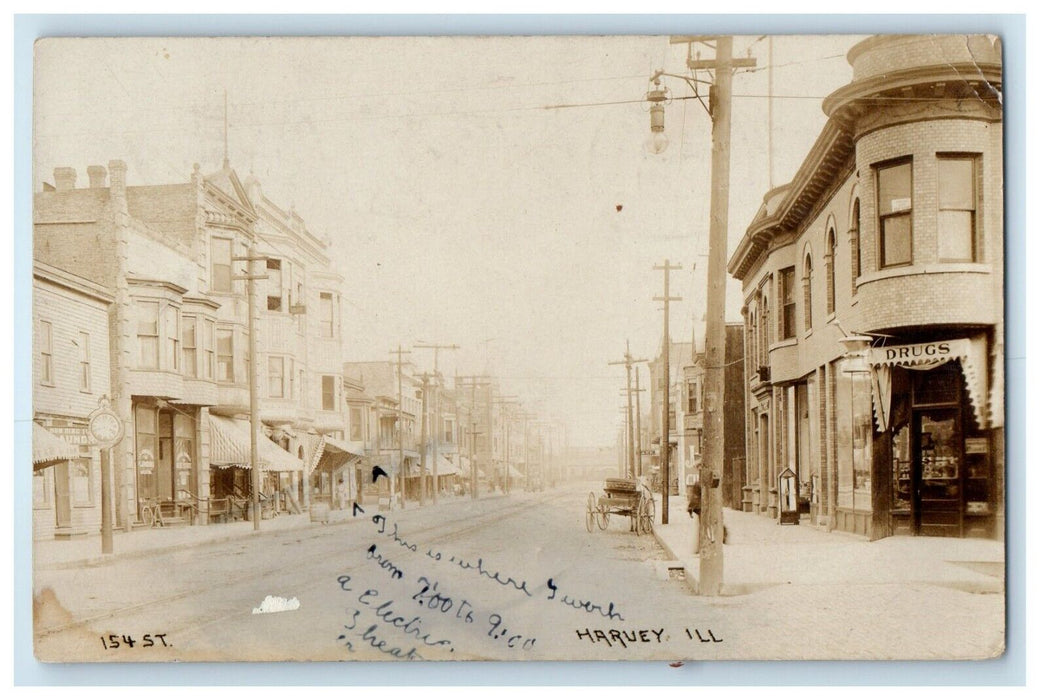 DRUGS
This is where I work
from 7:00 to 9:00
a Electric
154 ST.
HARVEY. ILL